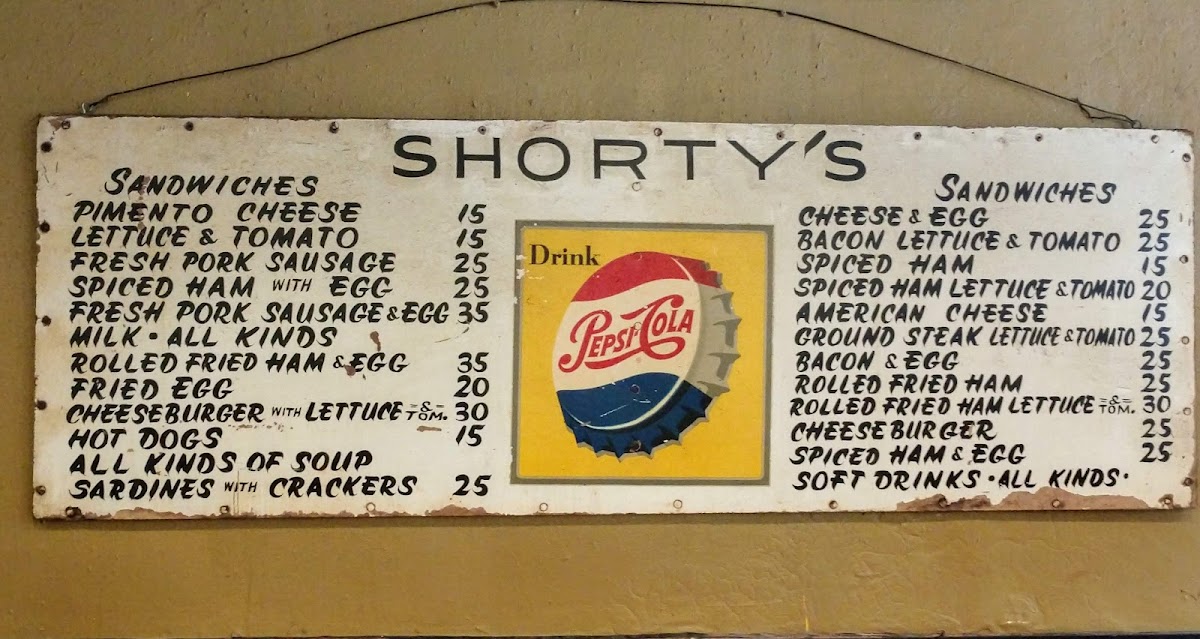 SHORTY'S
SANDWICHES
PIMENTO CHEESE 15
LETTUCE & TOMATO 15
FRESH PORK SAUSAGE 25
SPICED HAM WITH EGG 25
FRESH PORK SAUSAGE & EGG 35
MILK · ALL KINDS
ROLLED FRIED HAM & EGG 35
FRIED EGG 20
CHEESEBURGER WITH LETTUCE & TOM. 30
HOT DOGS 15
ALL KINDS OF SOUP
SARDINES WITH CRACKERS 25
Drink
PEPSI-COLA
SANDWICHES
CHEESE & EGG 25
BACON LETTUCE & TOMATO 25
SPICED HAM 15
SPICED HAM LETTUCE & TOMATO 20
AMERICAN CHEESE 15
GROUND STEAK LETTUCE & TOMATO 25
BACON & EGG 25
ROLLED FRIED HAM 25
ROLLED FRIED HAM LETTUCE & TOM. 30
CHEESEBURGER 25
SPICED HAM & EGG 25
SOFT DRINKS · ALL KINDS ·